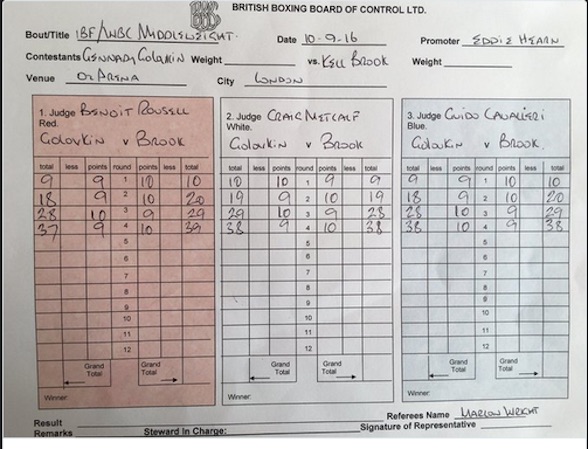 BRITISH BOXING BOARD OF CONTROL LTD.
Bout/Title IBF/WBC MIDDLEWEIGHT. Date 10-9-16 Promoter EDDIE HEARN
Contestants GENNADY GOLOVKIN Weight vs. KELL BROOK Weight
Venue O2 ARENA City LONDON
1. Judge BENOIT ROUSSELL 2. Judge CRAIG METCALF 3. Judge GUIDO CAVALLERI
Red. White. Blue.
GOLOVKIN v BROOK GOLOVKIN v BROOK GOLOVKIN v BROOK.
total less points round points less total total less points round points less total total less points round points less total
9 9 1 10 10 10 10 1 9 9 9 9 1 10 10
18 9 2 10 20 19 9 2 10 19 18 9 2 10 20
28 10 3 9 29 29 10 3 9 28 28 10 3 9 29
37 9 4 10 39 38 9 4 10 38 38 10 4 9 38
5 5 5
6 6 6
7 7 7
8 8 8
9 9 9
10 10 10
11 11 11
12 12 12
Grand Total Grand Total Grand Total Grand Total Grand Total Grand Total
Winner: Winner: Winner:
Result Referees Name MARLON WRIGHT
Remarks Steward In Charge: Signature of Representative